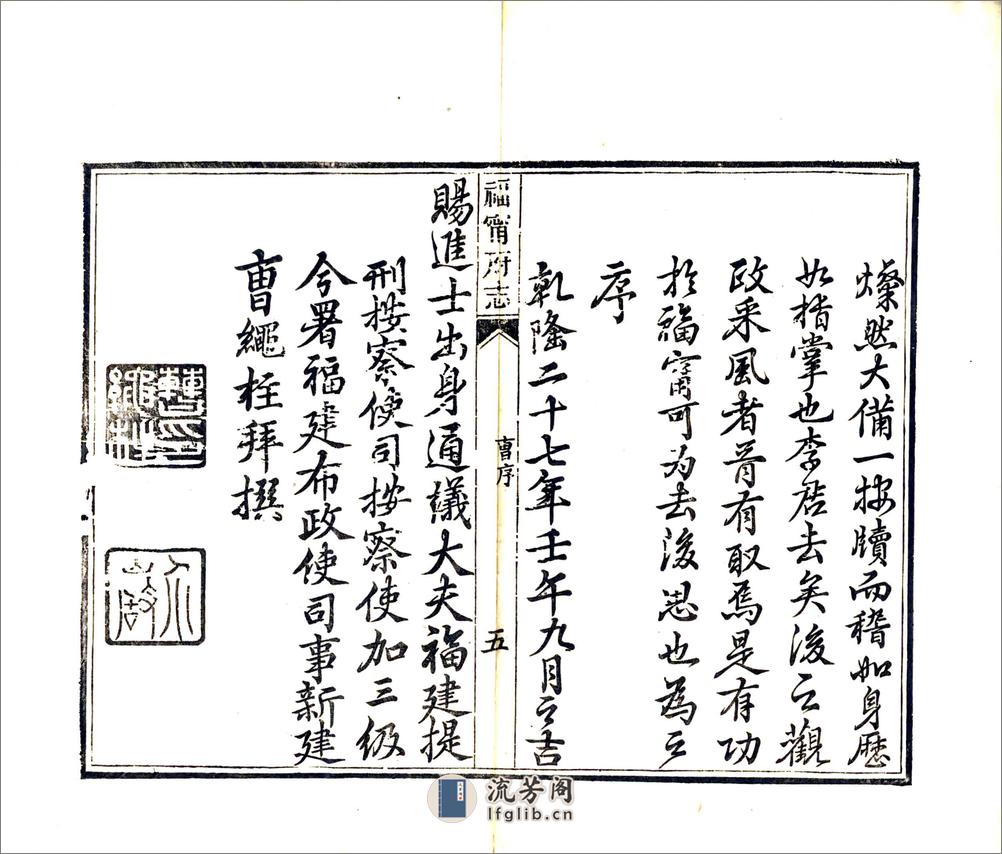 燦然大備一按牘而稽如身歷
如指掌也李君去矣後之觀
政采風者胥有取焉是有功
於福甯可為去後思也為之
序
乾隆二十七年壬午九月之吉
福甯府志
曹序
五
賜進士出身通議大夫福建提
刑按察使司按察使加三級
今署福建布政使司事新建
曹繩柱拜撰
曹繩柱印
流芳阁
lfglib.cn